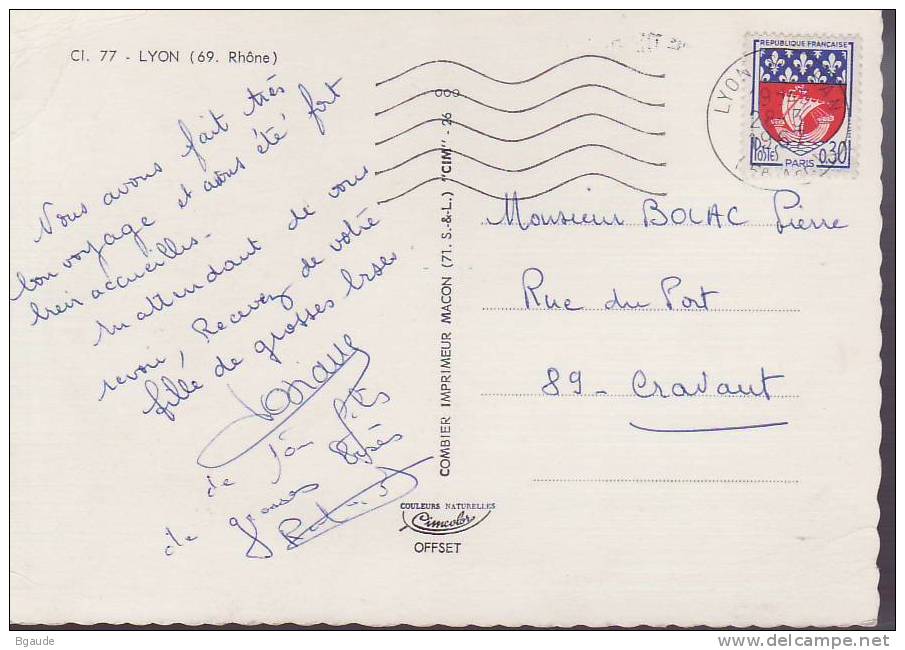 Cl. 77 - LYON (69. Rhône)
Nous avons fait très
bon voyage et avons été fort
bien accueillis.
En attendant de vous
revoir, Recevez de votre
fille de grosses bises
de ton fils
de grosses bisés
COMBIER IMPRIMEUR MACON (71. S.-&-L.) "CIM" - 26
000
COULEURS NATURELLES
Cimcolor
OFFSET
REPUBLIQUE FRANÇAISE
POSTES
PARIS
0,30
LYON
Monsieur BOLAC Pierre
Rue du Port
89 - Cravant
Bgaude
www.delcampe.net